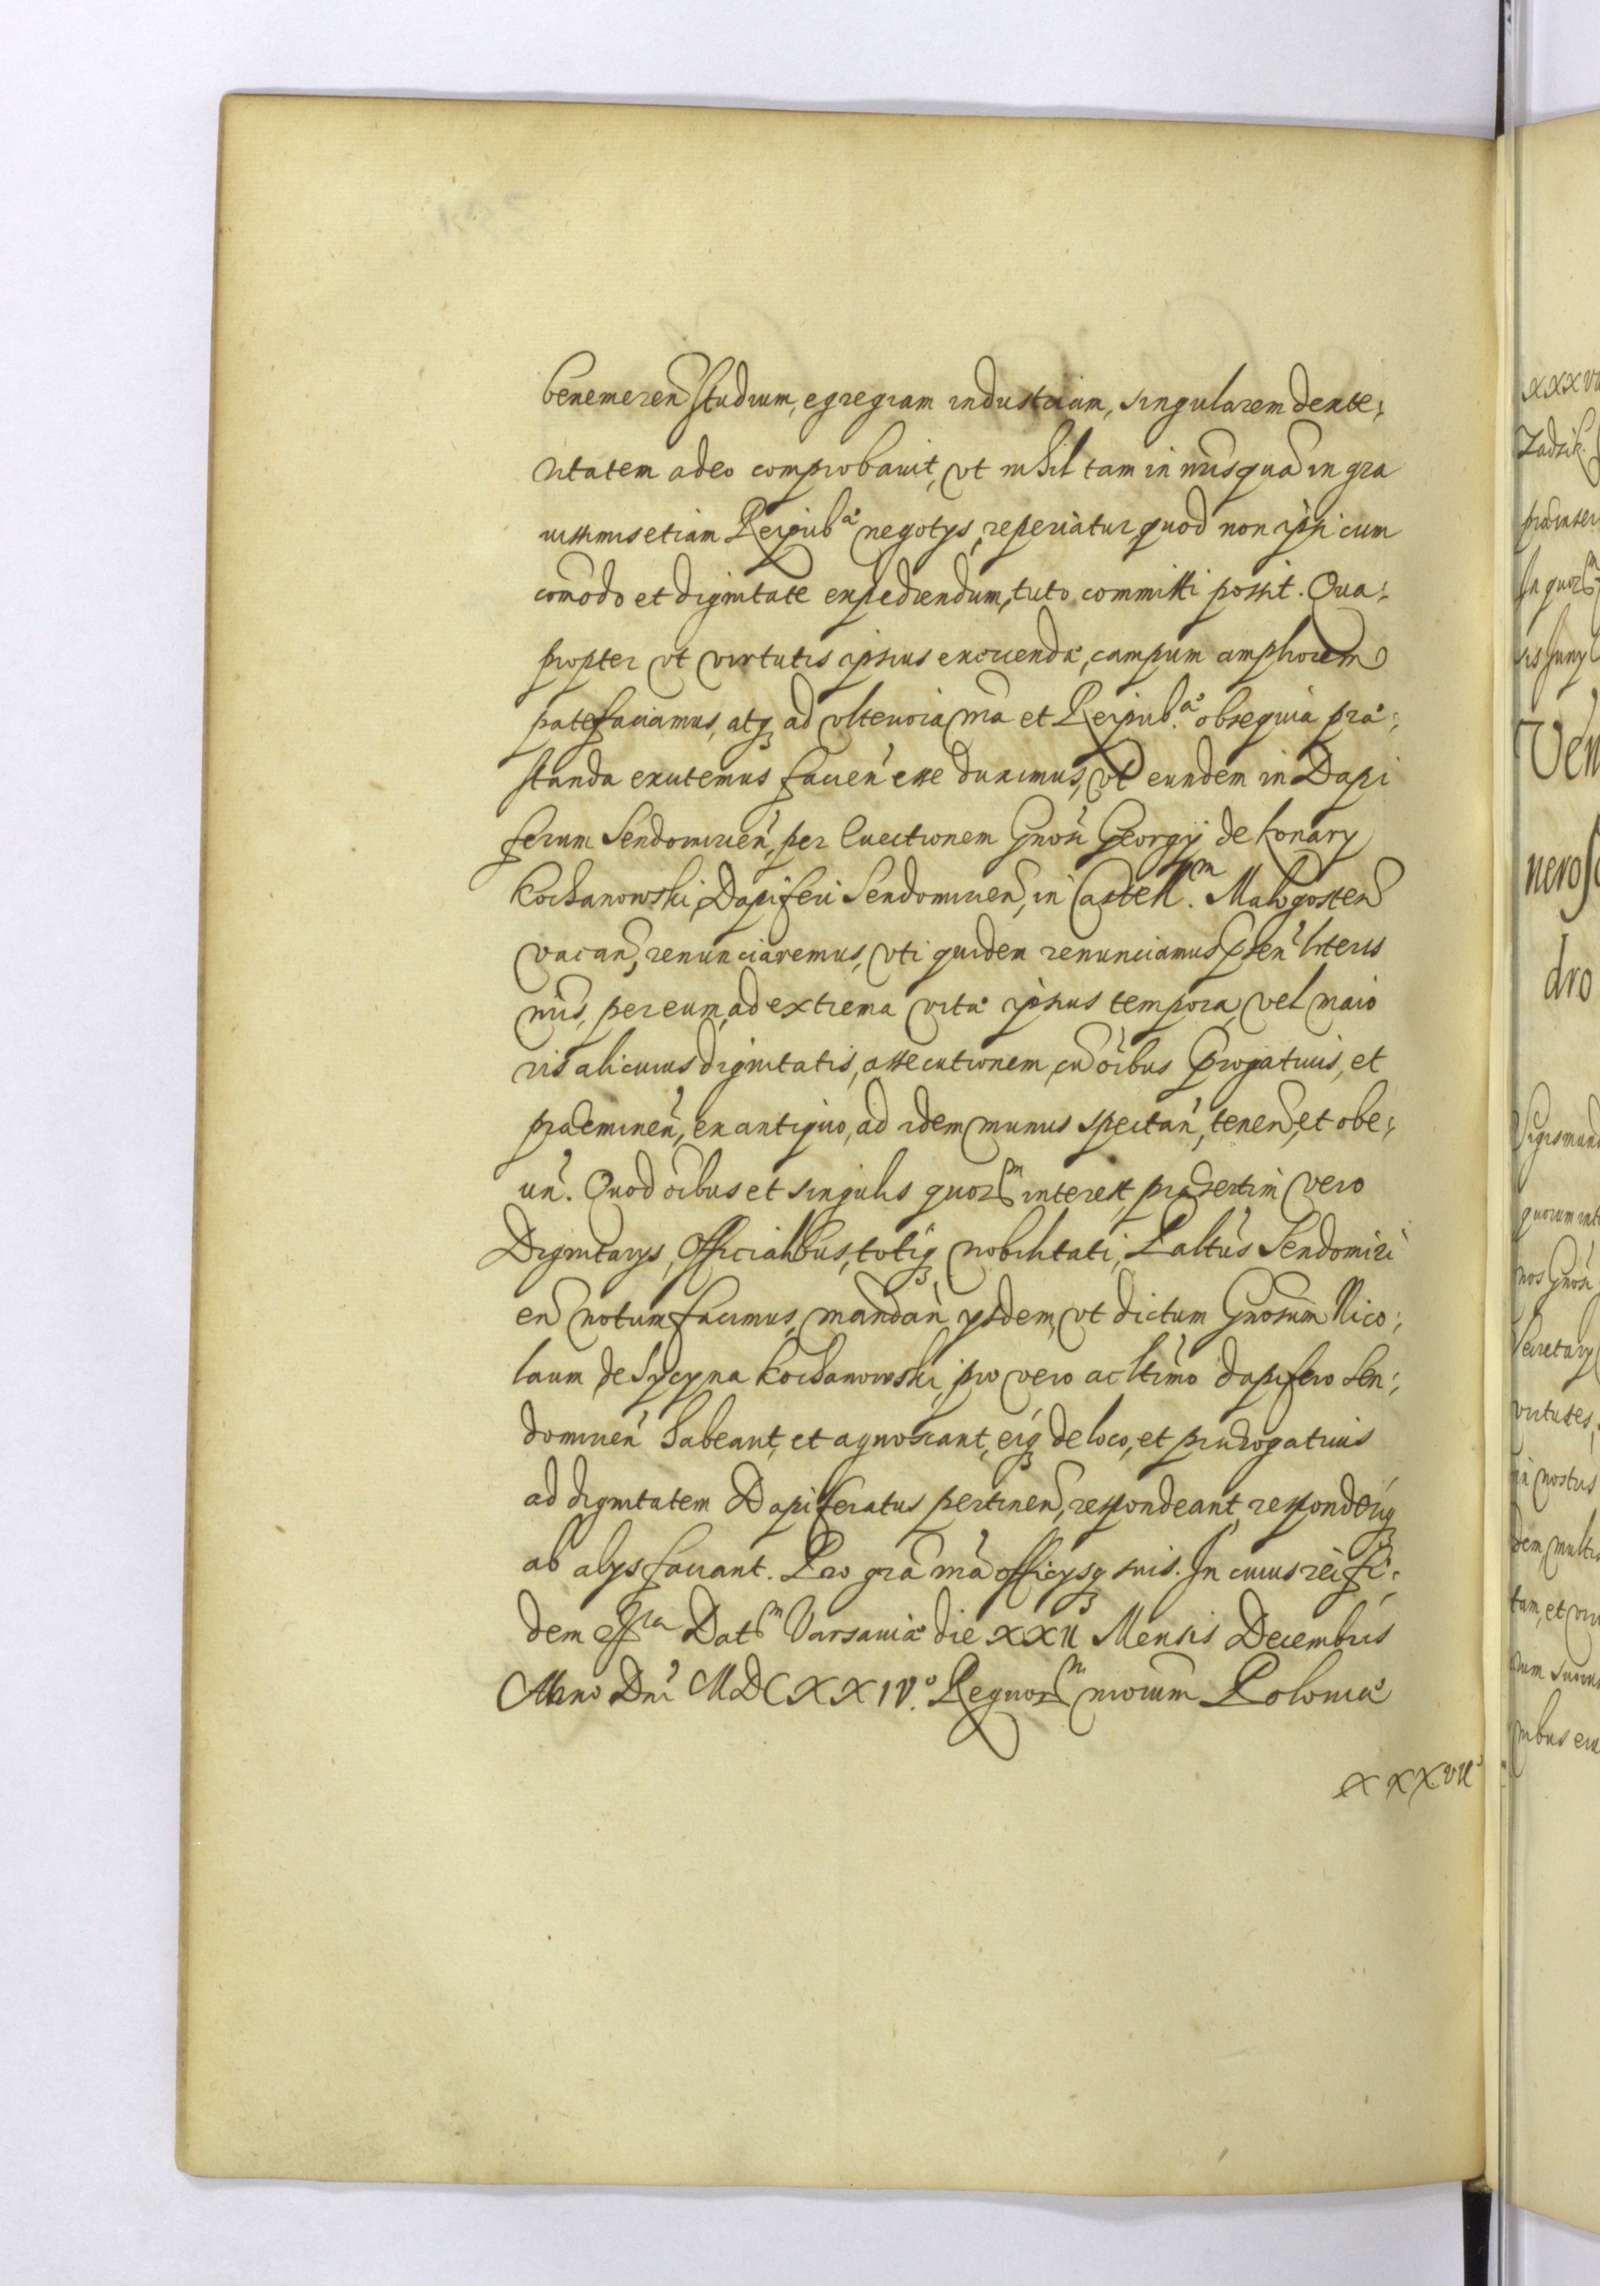 benemeren̄ studium, egregiam industriam, singularem dexte:
ritatem adeo comprobauit, vt nihil tam in nr̄is quā in gra
uissimis etiam Reipub.æ negotys, reperiatur, quod non ipsi cum
com̄odo et dignitate expediendum, tuto committi possit. Qua:
propter vt virtutis ipsius exercendæ, campum ampliorem
patefaciamus, atq̨ ad vlteriora nr̄a et Reipub.æ obsequia præ:
standa excitemus facien̄ esse duximus, vt eundem in Dapi
ferum Sendomirien̄, per euectionem Gn̄osi Georgÿ de Konary
Kochanowski, Dapiferi Sendomirien̄, in Castell.m Malogosten̄
vacan̄, renunciaremus, vti quidem renunciamus p̄sen̄ literis
nr̄is, per eum, ad extrema vitæ ipsius tempora, vel maio
ris alicuius dignitatis, assecutionem, cū oībus p̄rogatiuis, et
præeminen̄, ex antiquo, ad idem munus spectan̄, tenen̄, et obe:
un̄. Quod oībus et singulis quorm interest, præsertim vero
Dignitarys, Officialibus, totiq̨ nobilitati, Pal̄tus Sendomiri
en̄ notum facimus, mandan̄ ysdem, vt dictum Gn̄osum Nico:
laum de Sycyna Kochanowski, pro vero ac l̄timo dapifero Sen:
domirien̄ habeant, et agnoscant, eiq̨ de loco, et prærogatiuis
ad dignitatem Dapiferatus pertinen̄, respondeant, responderiq̨
ab alys faciant. Pro gr̄a nr̄a officysq̨ suis. In cuius rei fi:
dem etc. Datm Varsauiæ die XXII Mensis Decembris
Anno Dn̄i MDCXXIV.o Regnorm nr̄orum Poloniæ
XXXVIIo